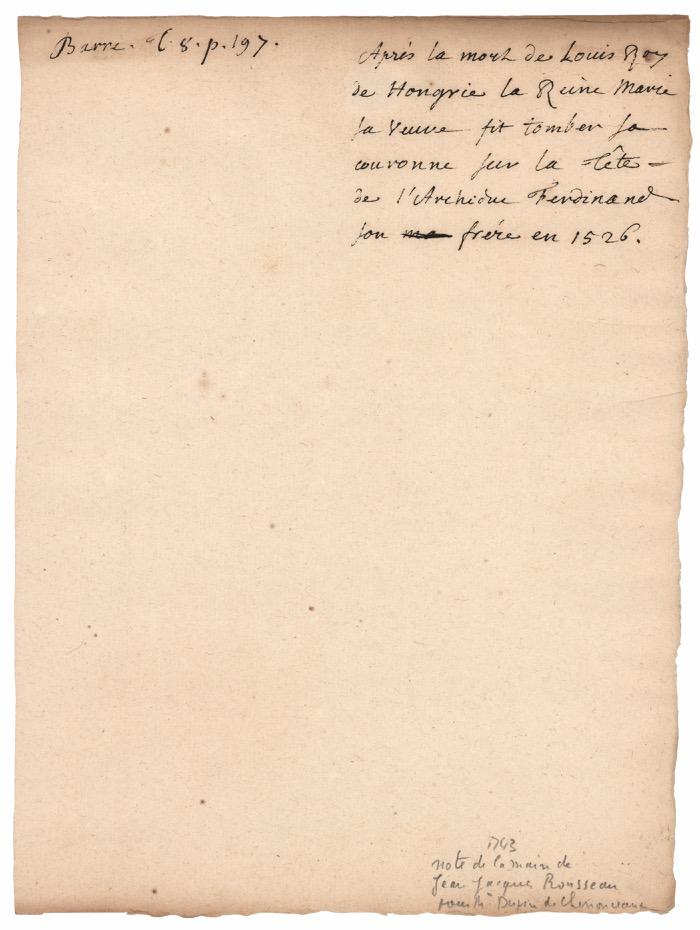 Barre. t. 8. p. 197.
Aprés la mort de Louis Roy
de Hongrie la Reine Marie
sa Veuve fit tomber sa
couronne sur la Tête
de l'Archiduc Ferdinand
son frére en 1526.
1743
note de la main de
Jean Jacques Rousseau
pour Me Dupin de Chenonceaux